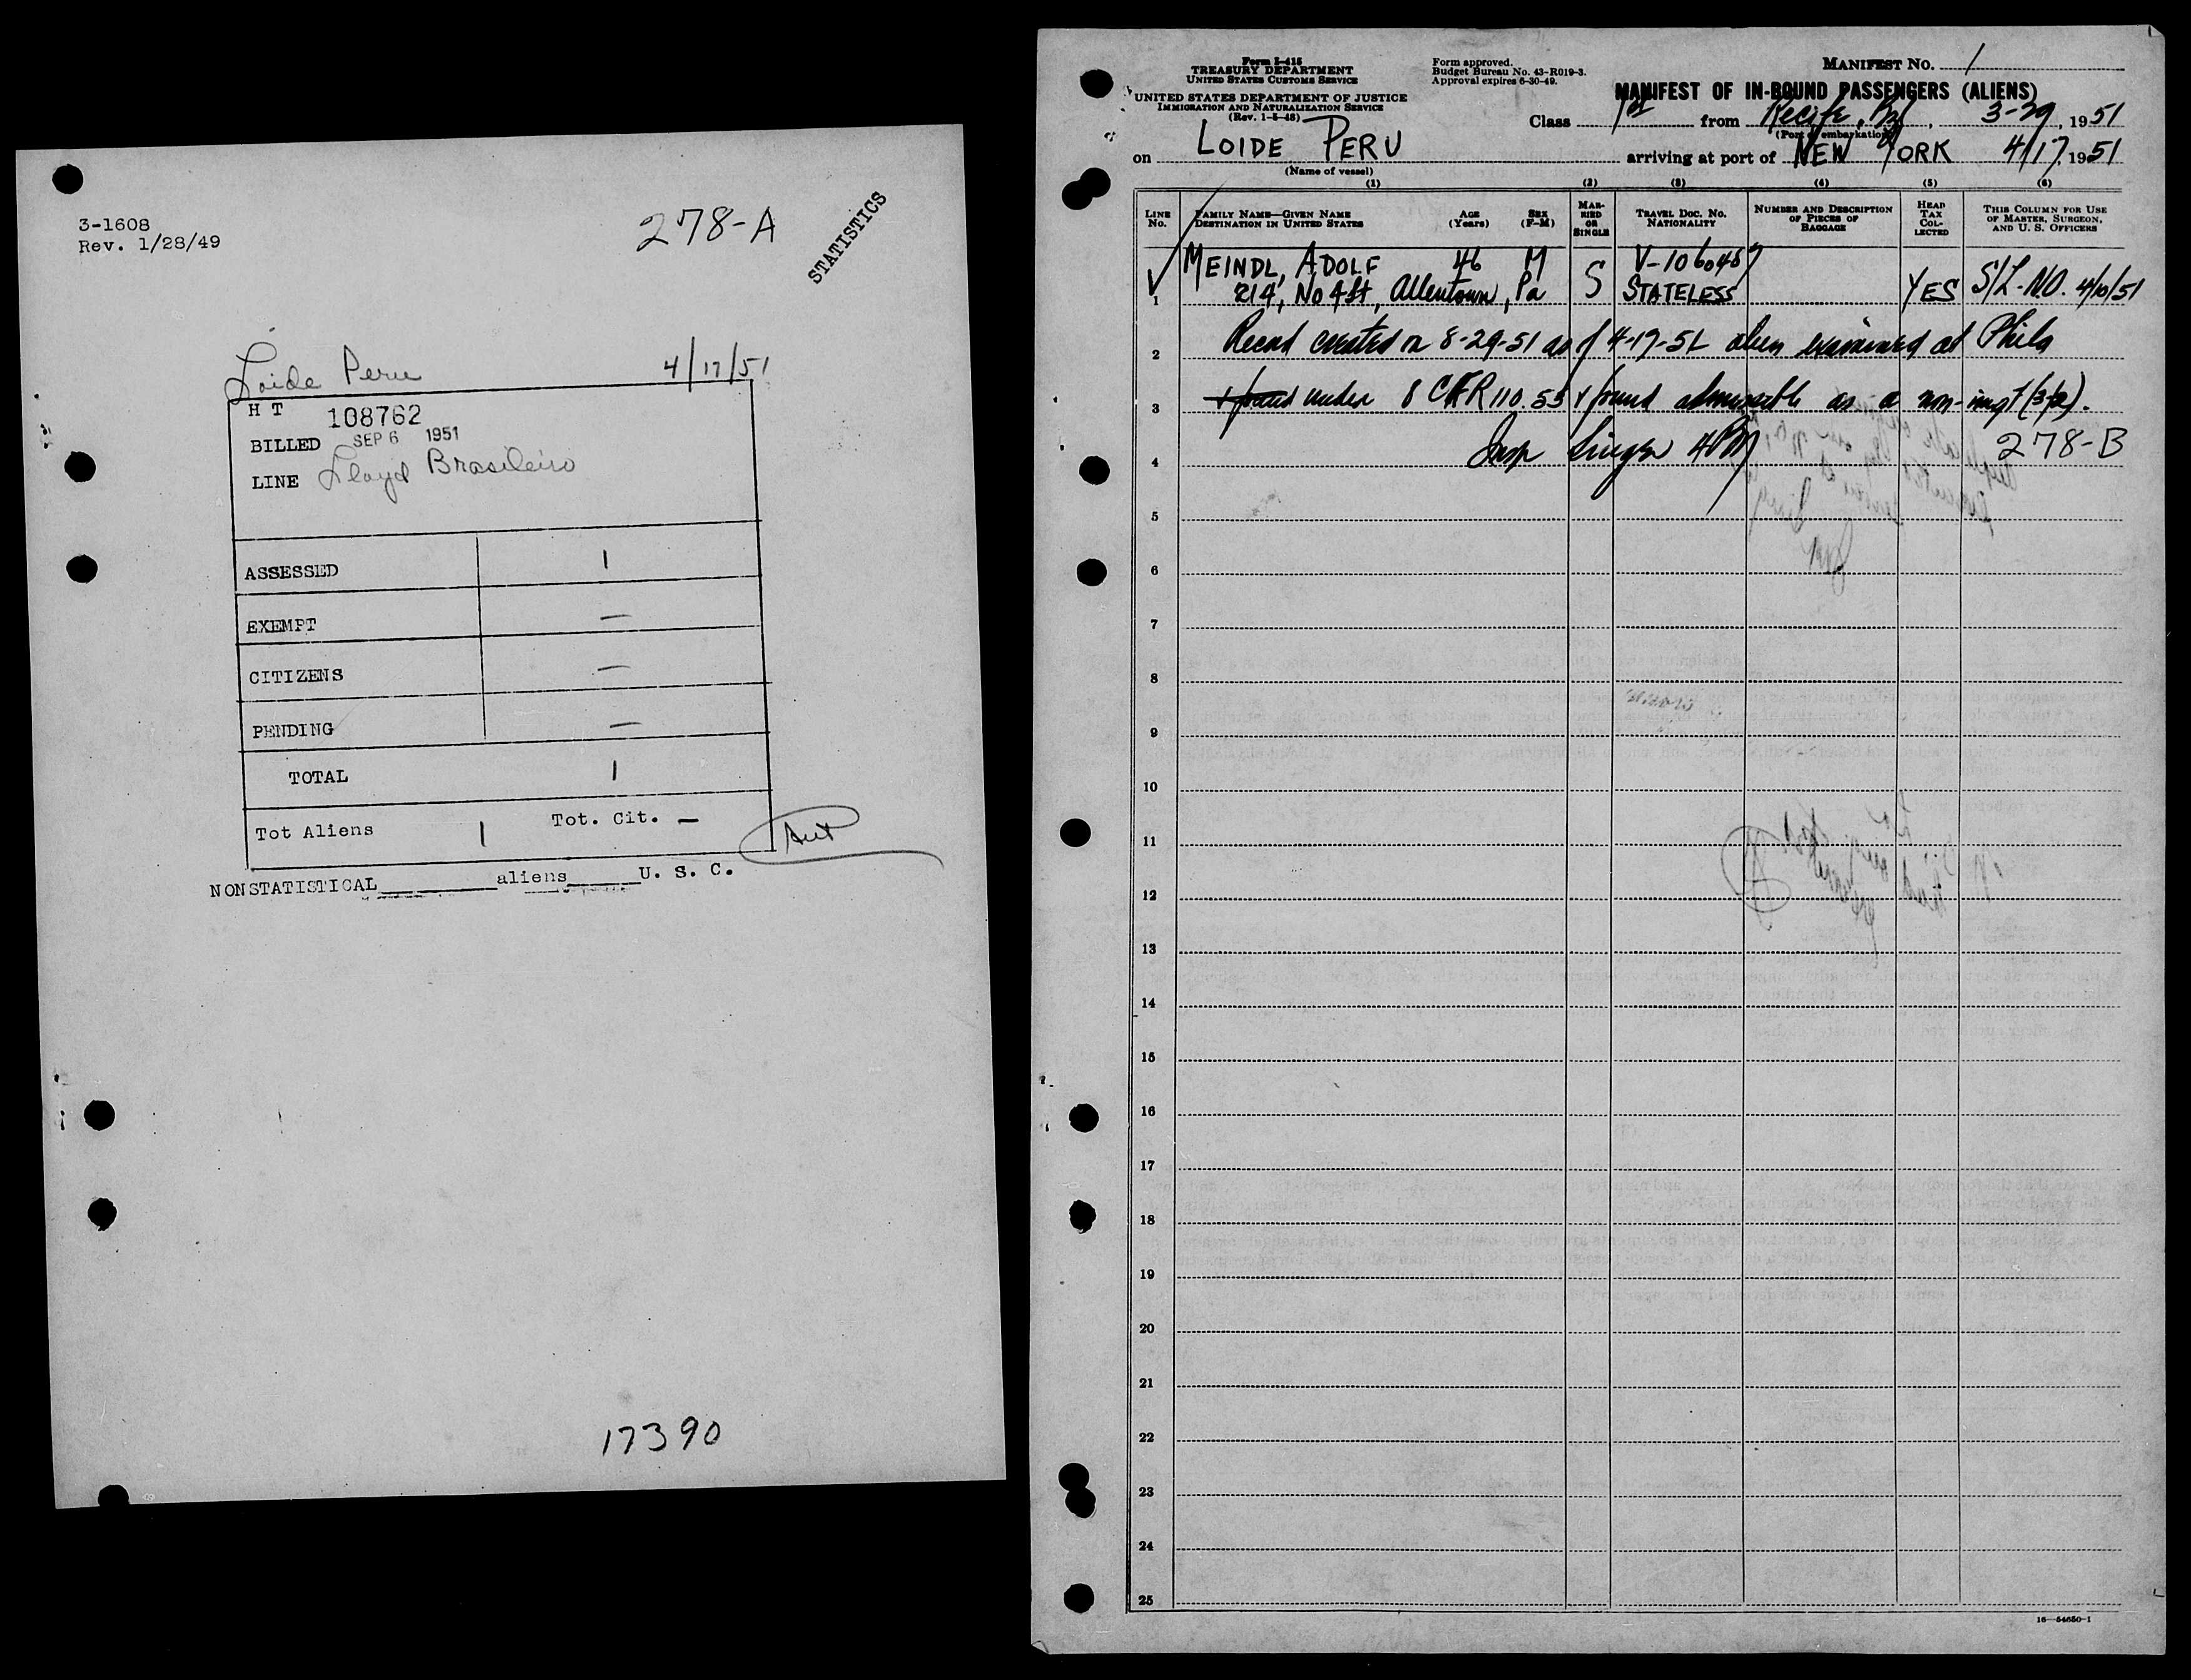 3-1608
Rev. 1/28/49
278-A
STATISTICS
Loide Peru 4/17/51
H T 108762
BILLED SEP 6 1951
LINE Lloyd Brasileiro
ASSESSED 1
EXEMPT —
CITIZENS —
PENDING —
TOTAL 1
Tot Aliens 1 Tot. Cit. —
NONSTATISTICAL aliens U. S. C.
17390
Form I-415
TREASURY DEPARTMENT
UNITED STATES CUSTOMS SERVICE
UNITED STATES DEPARTMENT OF JUSTICE
IMMIGRATION AND NATURALIZATION SERVICE
(Rev. 1-5-48)
Form approved.
Budget Bureau No. 43-R019-3.
Approval expires 6-30-49.
MANIFEST No. 1
MANIFEST OF IN-BOUND PASSENGERS (ALIENS)
Class 1st from Recife, Bzl, 3-29, 1951
(Port of embarkation)
on LOIDE PERU arriving at port of NEW YORK 4/17, 1951
(Name of vessel)
(1) (2) (3) (4) (5) (6)
LINE No.
FAMILY NAME—GIVEN NAME
DESTINATION IN UNITED STATES
AGE (Years)
SEX (F-M)
MARRIED OR SINGLE
TRAVEL DOC. No. NATIONALITY
NUMBER AND DESCRIPTION OF PIECES OF BAGGAGE
HEAD TAX COLLECTED
THIS COLUMN FOR USE OF MASTER, SURGEON, AND U. S. OFFICERS
MEINDL, ADOLF 46 M V-106048
1 214, No 4 St, Allentown, Pa S STATELESS YES S/L-N.O. 4/10/51
2 Record created on 8-29-51 as of 4-17-51 alien examined at Phila
3 & found under 8 CFR 110.53 & found admissible as a non-imgt (3(2)).
4 Insp 278-B
5
6
7
8
9
10
11
12
13
14
15
16
17
18
19
20
21
22
23
24
25
16—54650-1